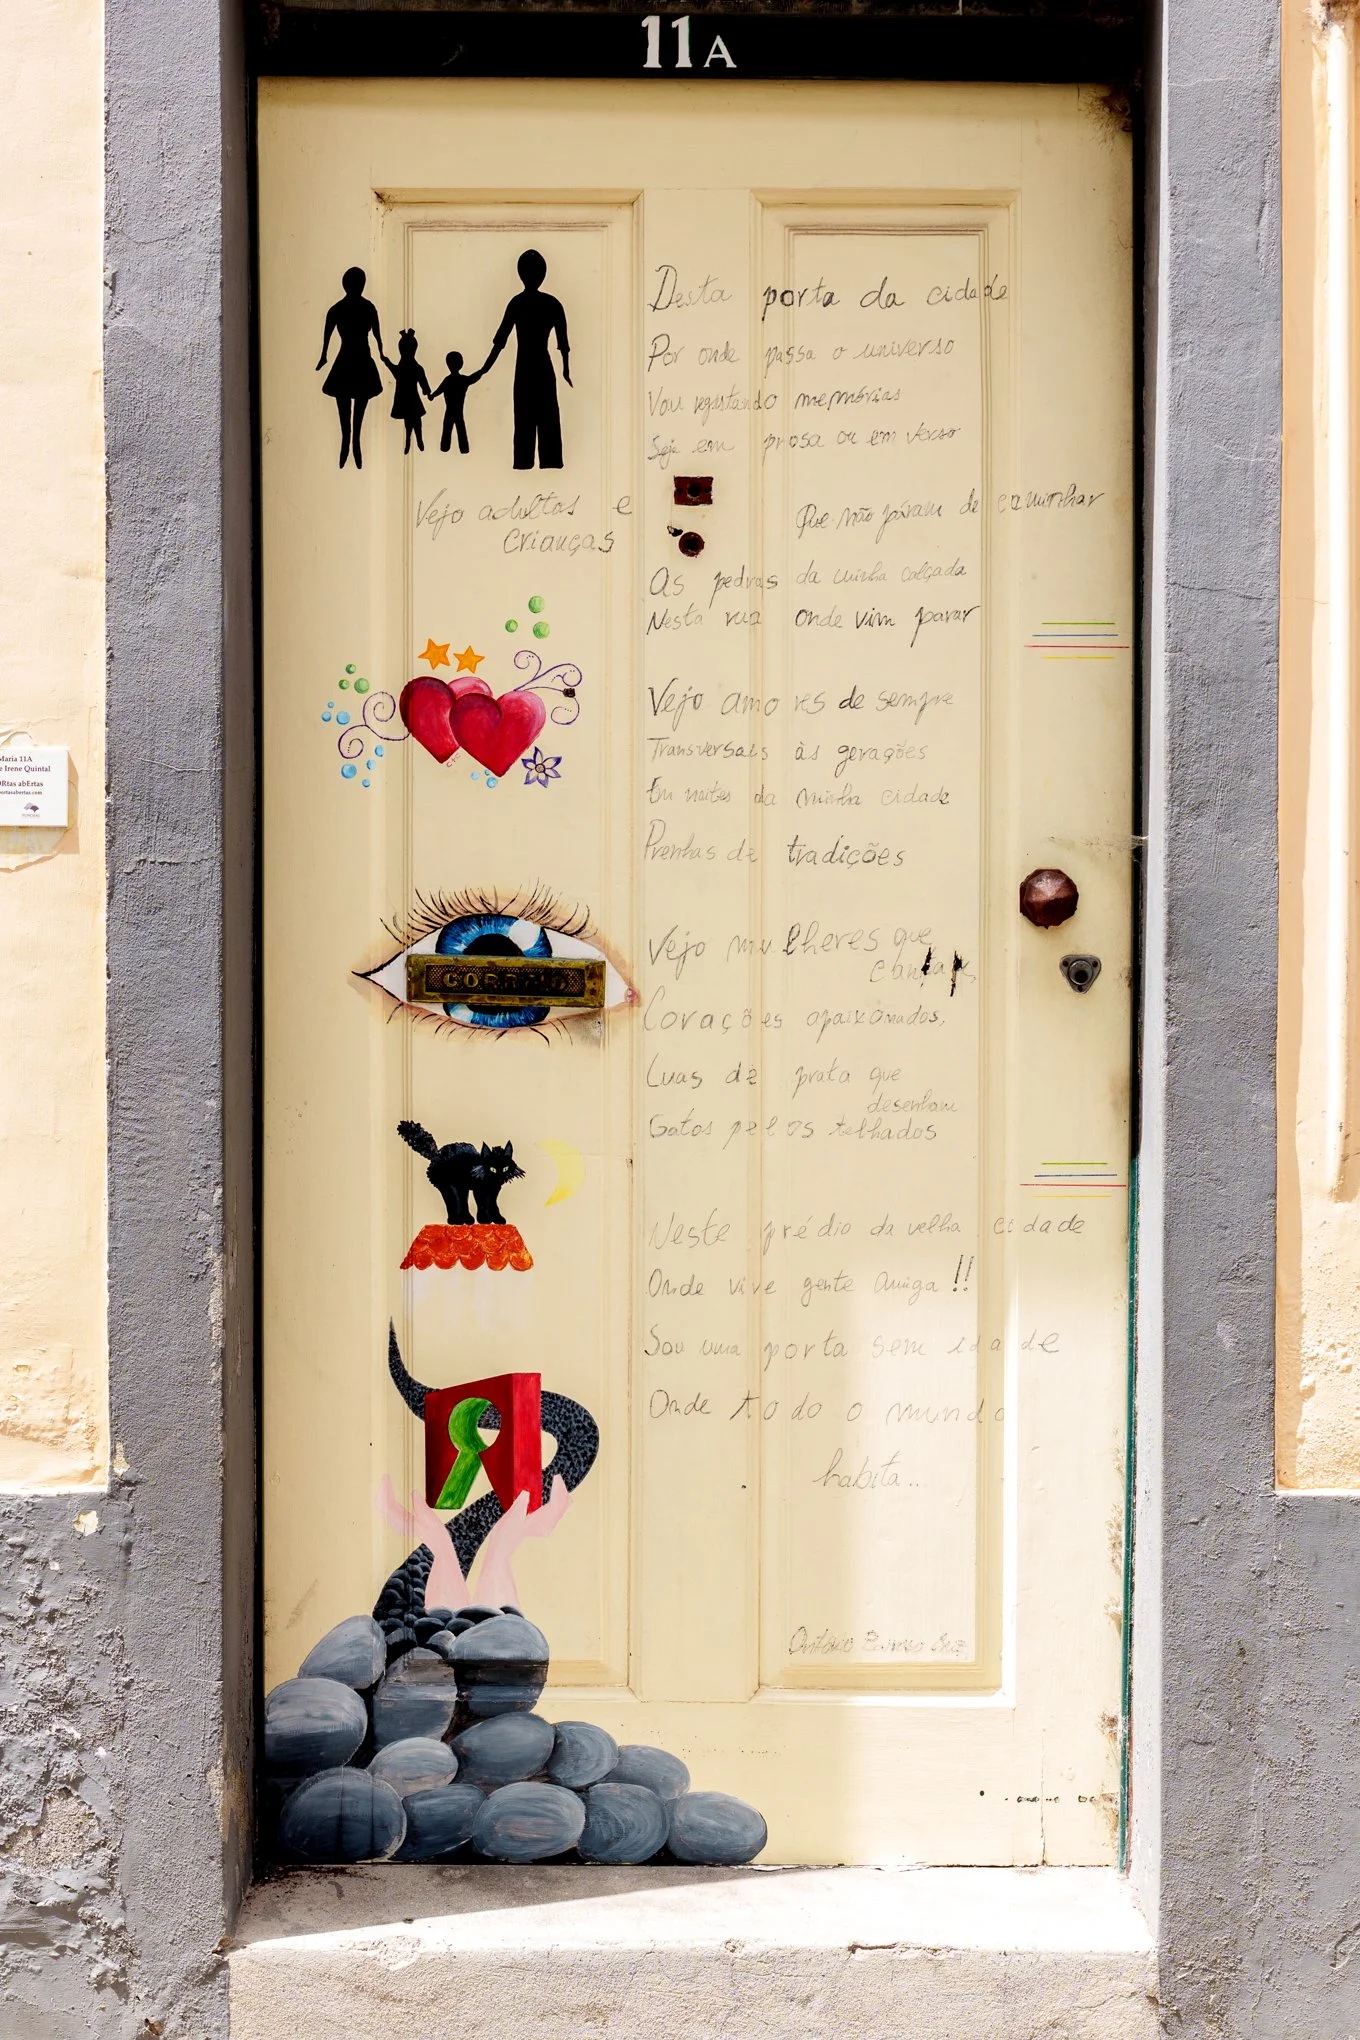 11A
Desta porta da cidade
Por onde passa o universo
Vou registando memórias
Seja em prosa ou em verso
Vejo adultos e
crianças
Que não páram de caminhar
As pedras da minha calçada
Nesta rua onde vim parar
Vejo amores de sempre
Transversais às gerações
Em noites da minha cidade
Prenhas de tradições
Vejo mulheres que
cantam,
Corações apaixonados,
Luas de prata que
desenham
Gatos pelos telhados
Neste prédio da velha cidade
Onde vive gente amiga!!
Sou uma porta sem idade
Onde todo o mundo
habita..
António
CORREIO
Maria 11A
e Irene Quintal
ORtas abErtas
portasabertas.com
FUNCHAL